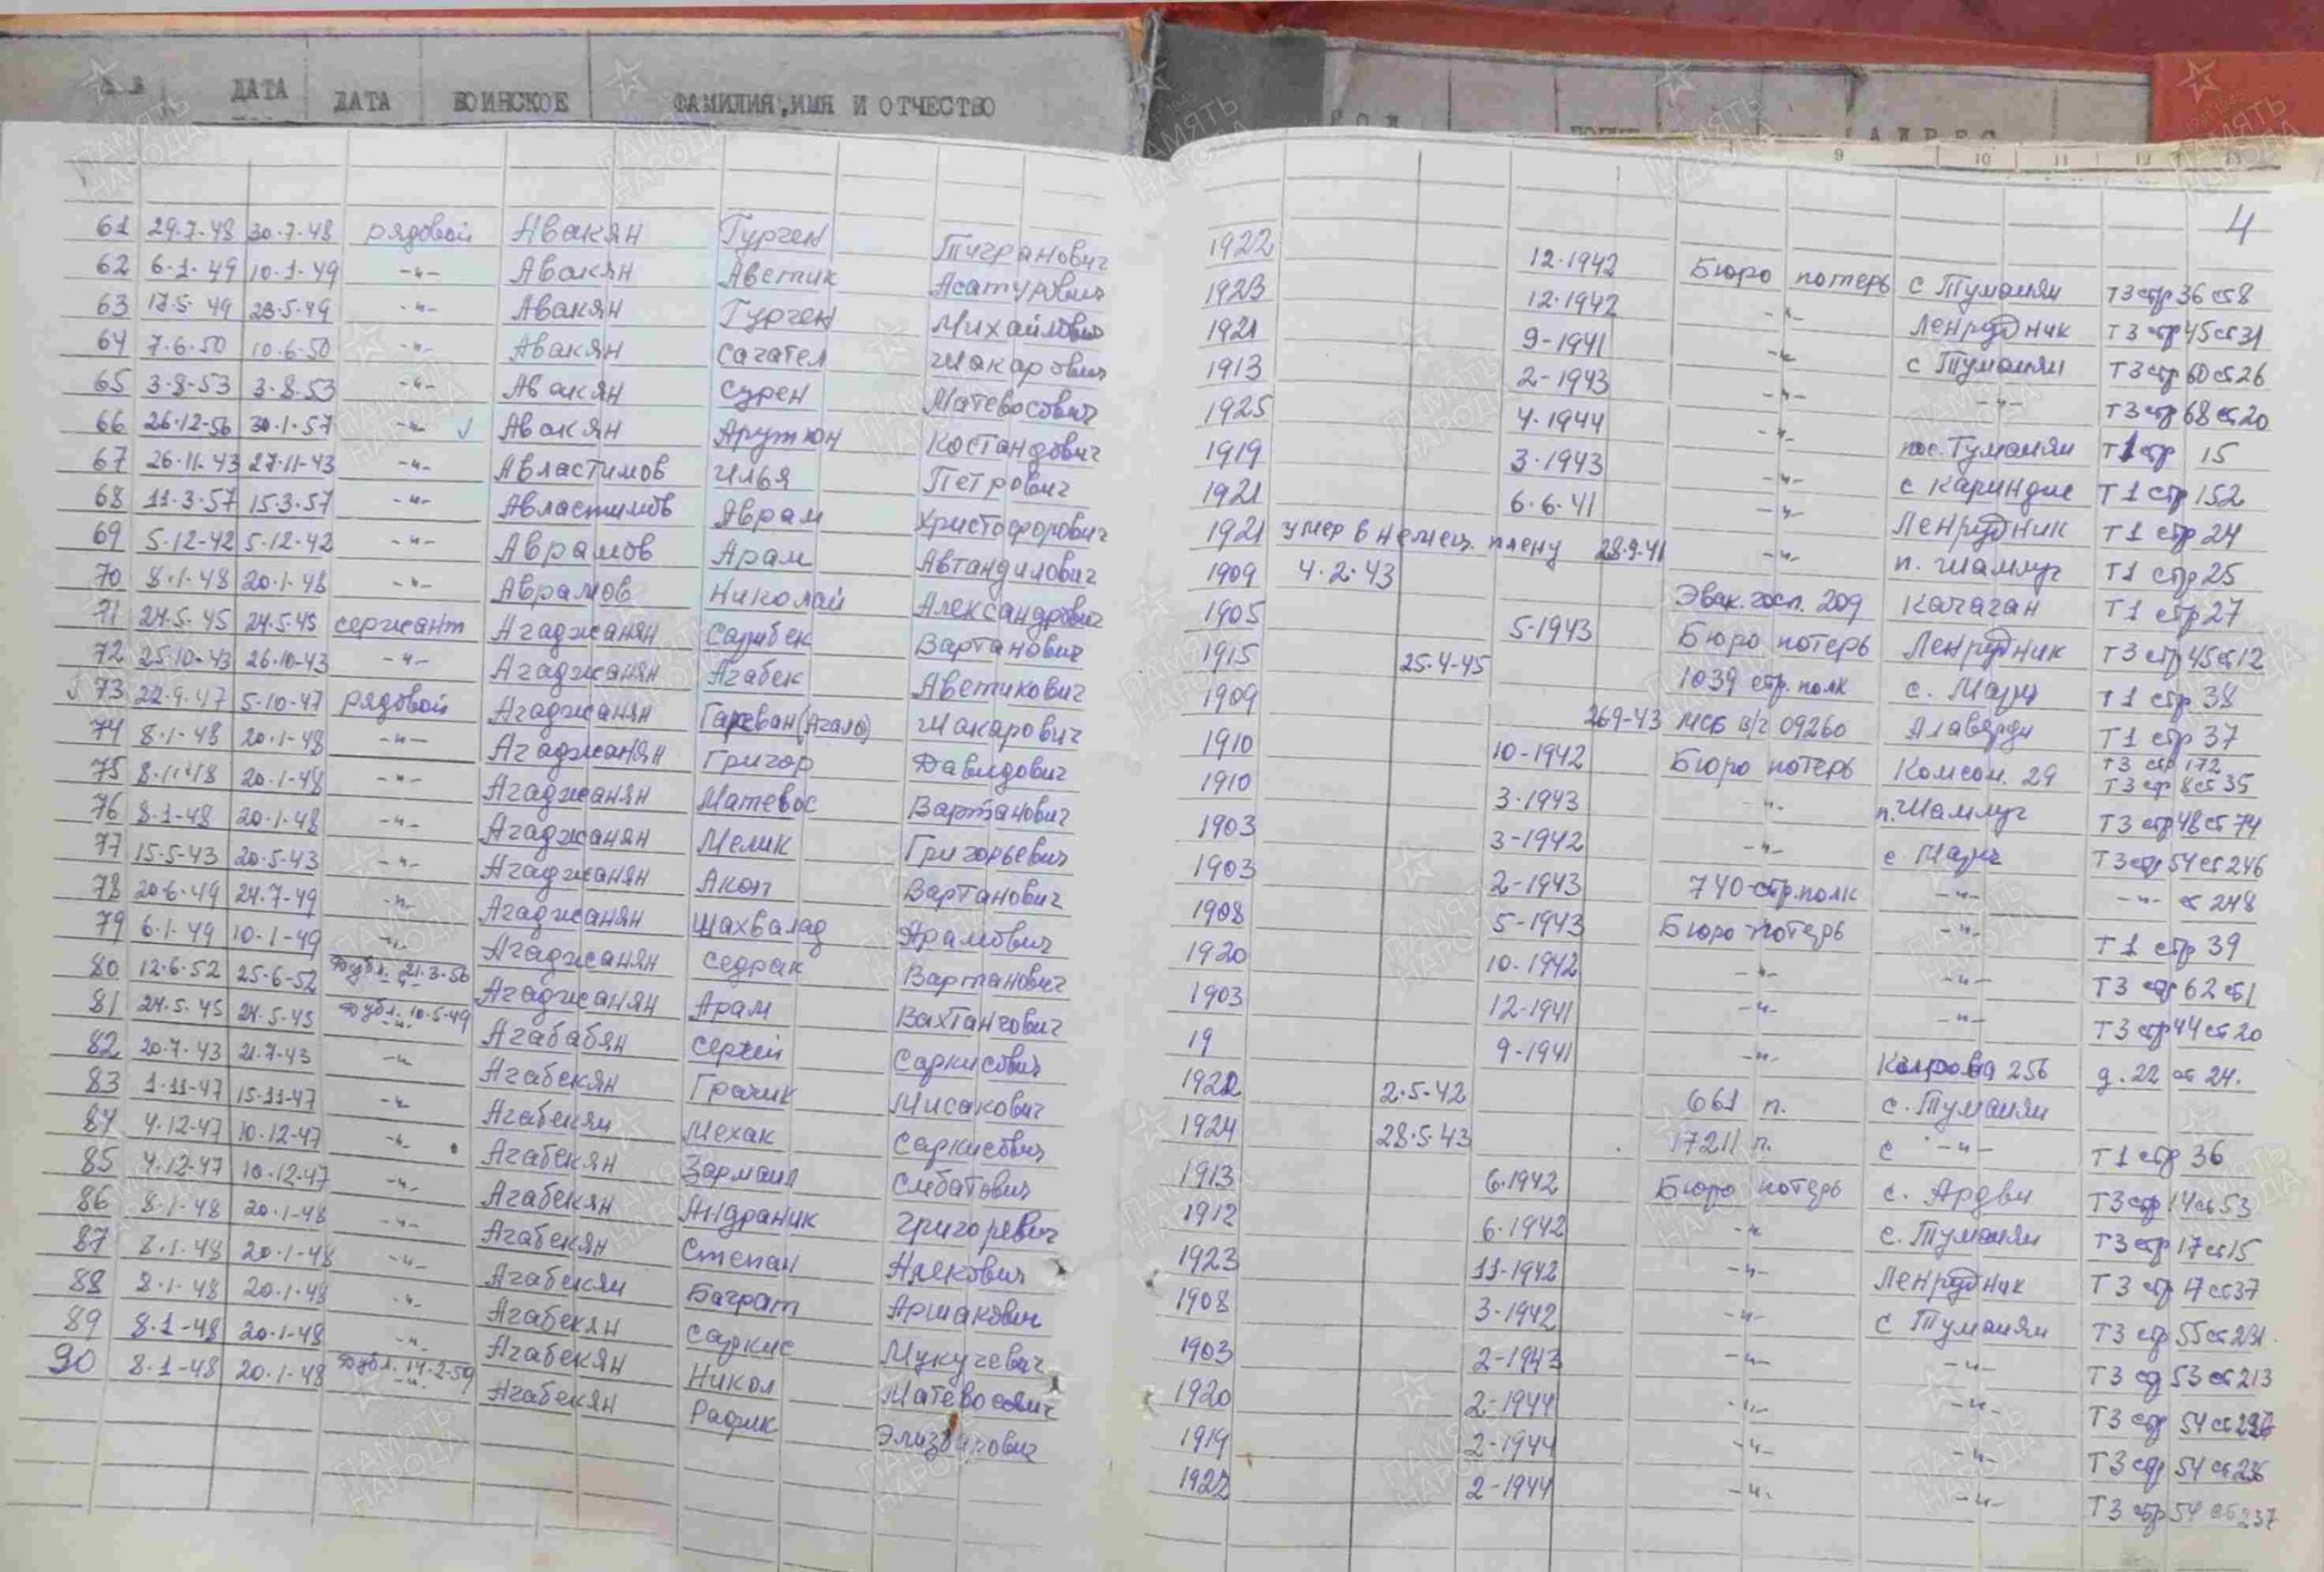 ДАТА ДАТА ВОИНСКОЕ ФАМИЛИЯ, ИМЯ И ОТЧЕСТВО АДРЕС
9 10 11 12 13
4
61 29.7-48 30.7-48 рядовой Авакян Гурген Тигранович 1922 12.1942 Бюро потерь с Туманян Т3 стр 36 ст 8
62 6-1-49 10-1-49 -"- Авакян Аветик Асатурович 1923 12.1942 -"- Ленрудник Т3 стр 45 ст 31
63 17-5-49 23-5-49 -"- Авакян Гурген Михайлович 1921 9-1941 -"- с Туманян Т3 стр 60 ст 26
64 7-6-50 10-6-50 -"- Авакян Сагател Макарович 1913 2-1943 -"- -"- Т3 стр 68 ст 20
65 3-8-53 3-8-53 -"- Авакян Сурен Матевосович 1925 4.1944 -"- пос. Туманян Т1 стр 15
66 26-12-56 30-1-57 -"- Авакян Арутюн Костандович 1919 3.1943 -"- с Кариндж Т1 стр 152
67 26-11-43 27-11-43 -"- Авластимов Илья Петрович 1921 6.6.41 -"- Ленрудник Т1 стр 24
68 11-3-57 15-3-57 -"- Авластимов Аврам Христофорович 1921 умер в немец. плену 28.9.41 -"- п. Шамлуг Т1 стр 25
69 5-12-42 5-12-42 -"- Аврамов Арам Автандилович 1909 4.2.43 Эвак. госп. 209 Качаган Т1 стр 27
70 8-1-48 20-1-48 -"- Аврамов Николай Александрович 1905 5-1943 Бюро потерь Ленрудник Т3 стр 45 ст 12
71 24-5-45 24-5-45 сержант Агаджанян Сарибек Вартанович 1915 25-4-45 1039 стр. полк с. Марц Т1 стр 38
72 25-10-43 26-10-43 -"- Агаджанян Агабек Аветикович 1909 269-43 МСБ в/ч 09260 Алаверди Т1 стр 37
73 22-9-47 5-10-47 рядовой Агаджанян (Агало) Макарович 1910 10-1942 Бюро потерь Комсом. 29 Т3 стр 172 Т3 стр 8 ст 35
74 8-1-48 20-1-48 -"- Агаджанян Григор Давидович 1910 3.1943 -"- п. Шамлуг Т3 стр 48 ст 74
75 20-1-48 -"- Агаджанян Матевос Вартанович 1903 3-1942 -"- с. Марц Т3 стр 54 ст 246
76 8-1-48 20-1-48 -"- Агаджанян Мелик Григорьевич 1903 2-1943 740 стр. полк -"- -"- ст 248
77 15-5-43 20-5-43 -"- Агаджанян Акоп Вартанович 1908 5-1943 Бюро потерь -"- Т1 стр 39
78 20-6-49 24-7-49 -"- Агаджанян Шахвалад Арамович 1920 10-1942 -"- -"- Т3 стр 62 ст 1
79 6-1-49 10-1-49 -"- Агаджанян Седрак Вартанович 1903 12-1941 -"- -"- Т3 стр 44 ст 20
80 12-6-52 25-6-52 Дубл. 21-3-56 -"- Агаджанян Арам Вахтангович 19 9-1941 -"- Кирова 256 д. 22 ст 24.
81 24-5-45 24-5-45 Дубл. 10-5-49 -"- Агабабян Сергей Саркисович 1922 2-5-42 661 п. с. Туманян
82 20-7-43 21-7-43 -"- Агабекян Грачик Мисакович 1924 28-5-43 17211 п. с -"- Т1 стр 36
83 1-11-47 15-11-47 -"- Агабекян Мехак Саркисович 1913 6.1942 Бюро потерь с. Ардви Т3 стр 14 ст 53
84 4-12-47 10-12-47 -"- Агабекян Зармаил Смбатович 1912 6.1942 -"- с. Туманян Т3 стр 17 ст 15
85 4-12-47 10-12-47 -"- Агабекян Андраник Григоревич 1923 11-1942 -"- Ленрудник Т3 стр 17 ст 37
86 8-1-48 20-1-48 -"- Агабекян Степан 1908 3-1942 -"- с Туманян Т3 стр 55 ст 231.
87 8-1-48 20-1-48 -"- Агабекян Баграт Аршакович 1903 2-1943 -"- -"- Т3 стр 53 ст 213
88 8-1-48 20-1-48 -"- Агабекян Саркис Мукучевич 1920 2-1944 -"- -"- Т3 стр 54 ст
89 8-1-48 20-1-48 -"- Агабекян Никол Матевосович 1919 2-1944 -"- -"- Т3 стр 54 ст 236
90 8-1-48 20-1-48 Дубл. 14-2-59 -"- Агабекян Рафик Элизбарович 1922 2-1944 -"- -"- Т3 стр 54 ст 237